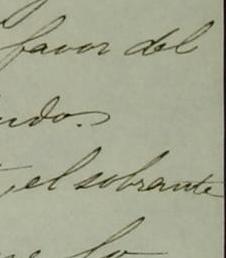 favor del
ndo.
, el sobrante
lo